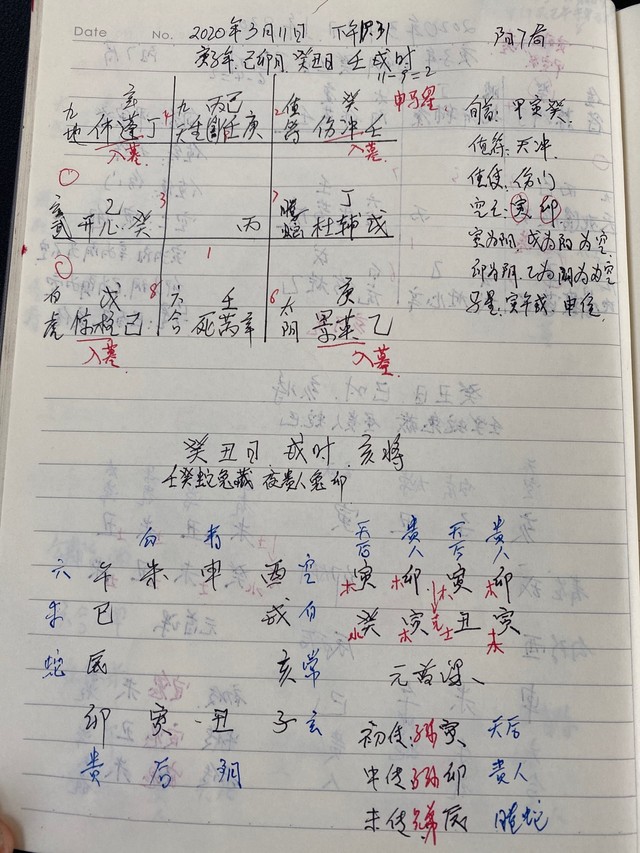 Date No. 2020年3月11日 下午 阳7局
庚子年 己卯月 癸丑日 壬戌时
11-9=2
九地 休蓬丁 九天 丙己 庚 值符 癸 伤冲壬
入墓 入墓
旬首:甲寅癸
值符:天冲
值使:伤门
空亡:寅卯
玄武 乙 开心癸 丙 腾蛇 丁 杜辅戊
寅为阴 戌为阳 为空
卯为阴 乙为阴 为空
马星:寅午戌 申位
白虎 戊 己 六合 壬 死芮辛 太阴 庚 景英乙
入墓 入墓
癸丑日 戌时 亥将
壬癸蛇兔藏 夜贵人兔卯
六 午 未 申 酉 空
朱 巳 戌 白
蛇 辰 亥 常
卯 寅 丑 子 玄
贵 后 阴
天后 贵人 天后 贵人
木寅 木卯 木寅 木卯
水癸 木寅 土丑 木寅
元首课、
初传:孙寅 天后
中传 孙卯 贵人
末传 辰 腾蛇